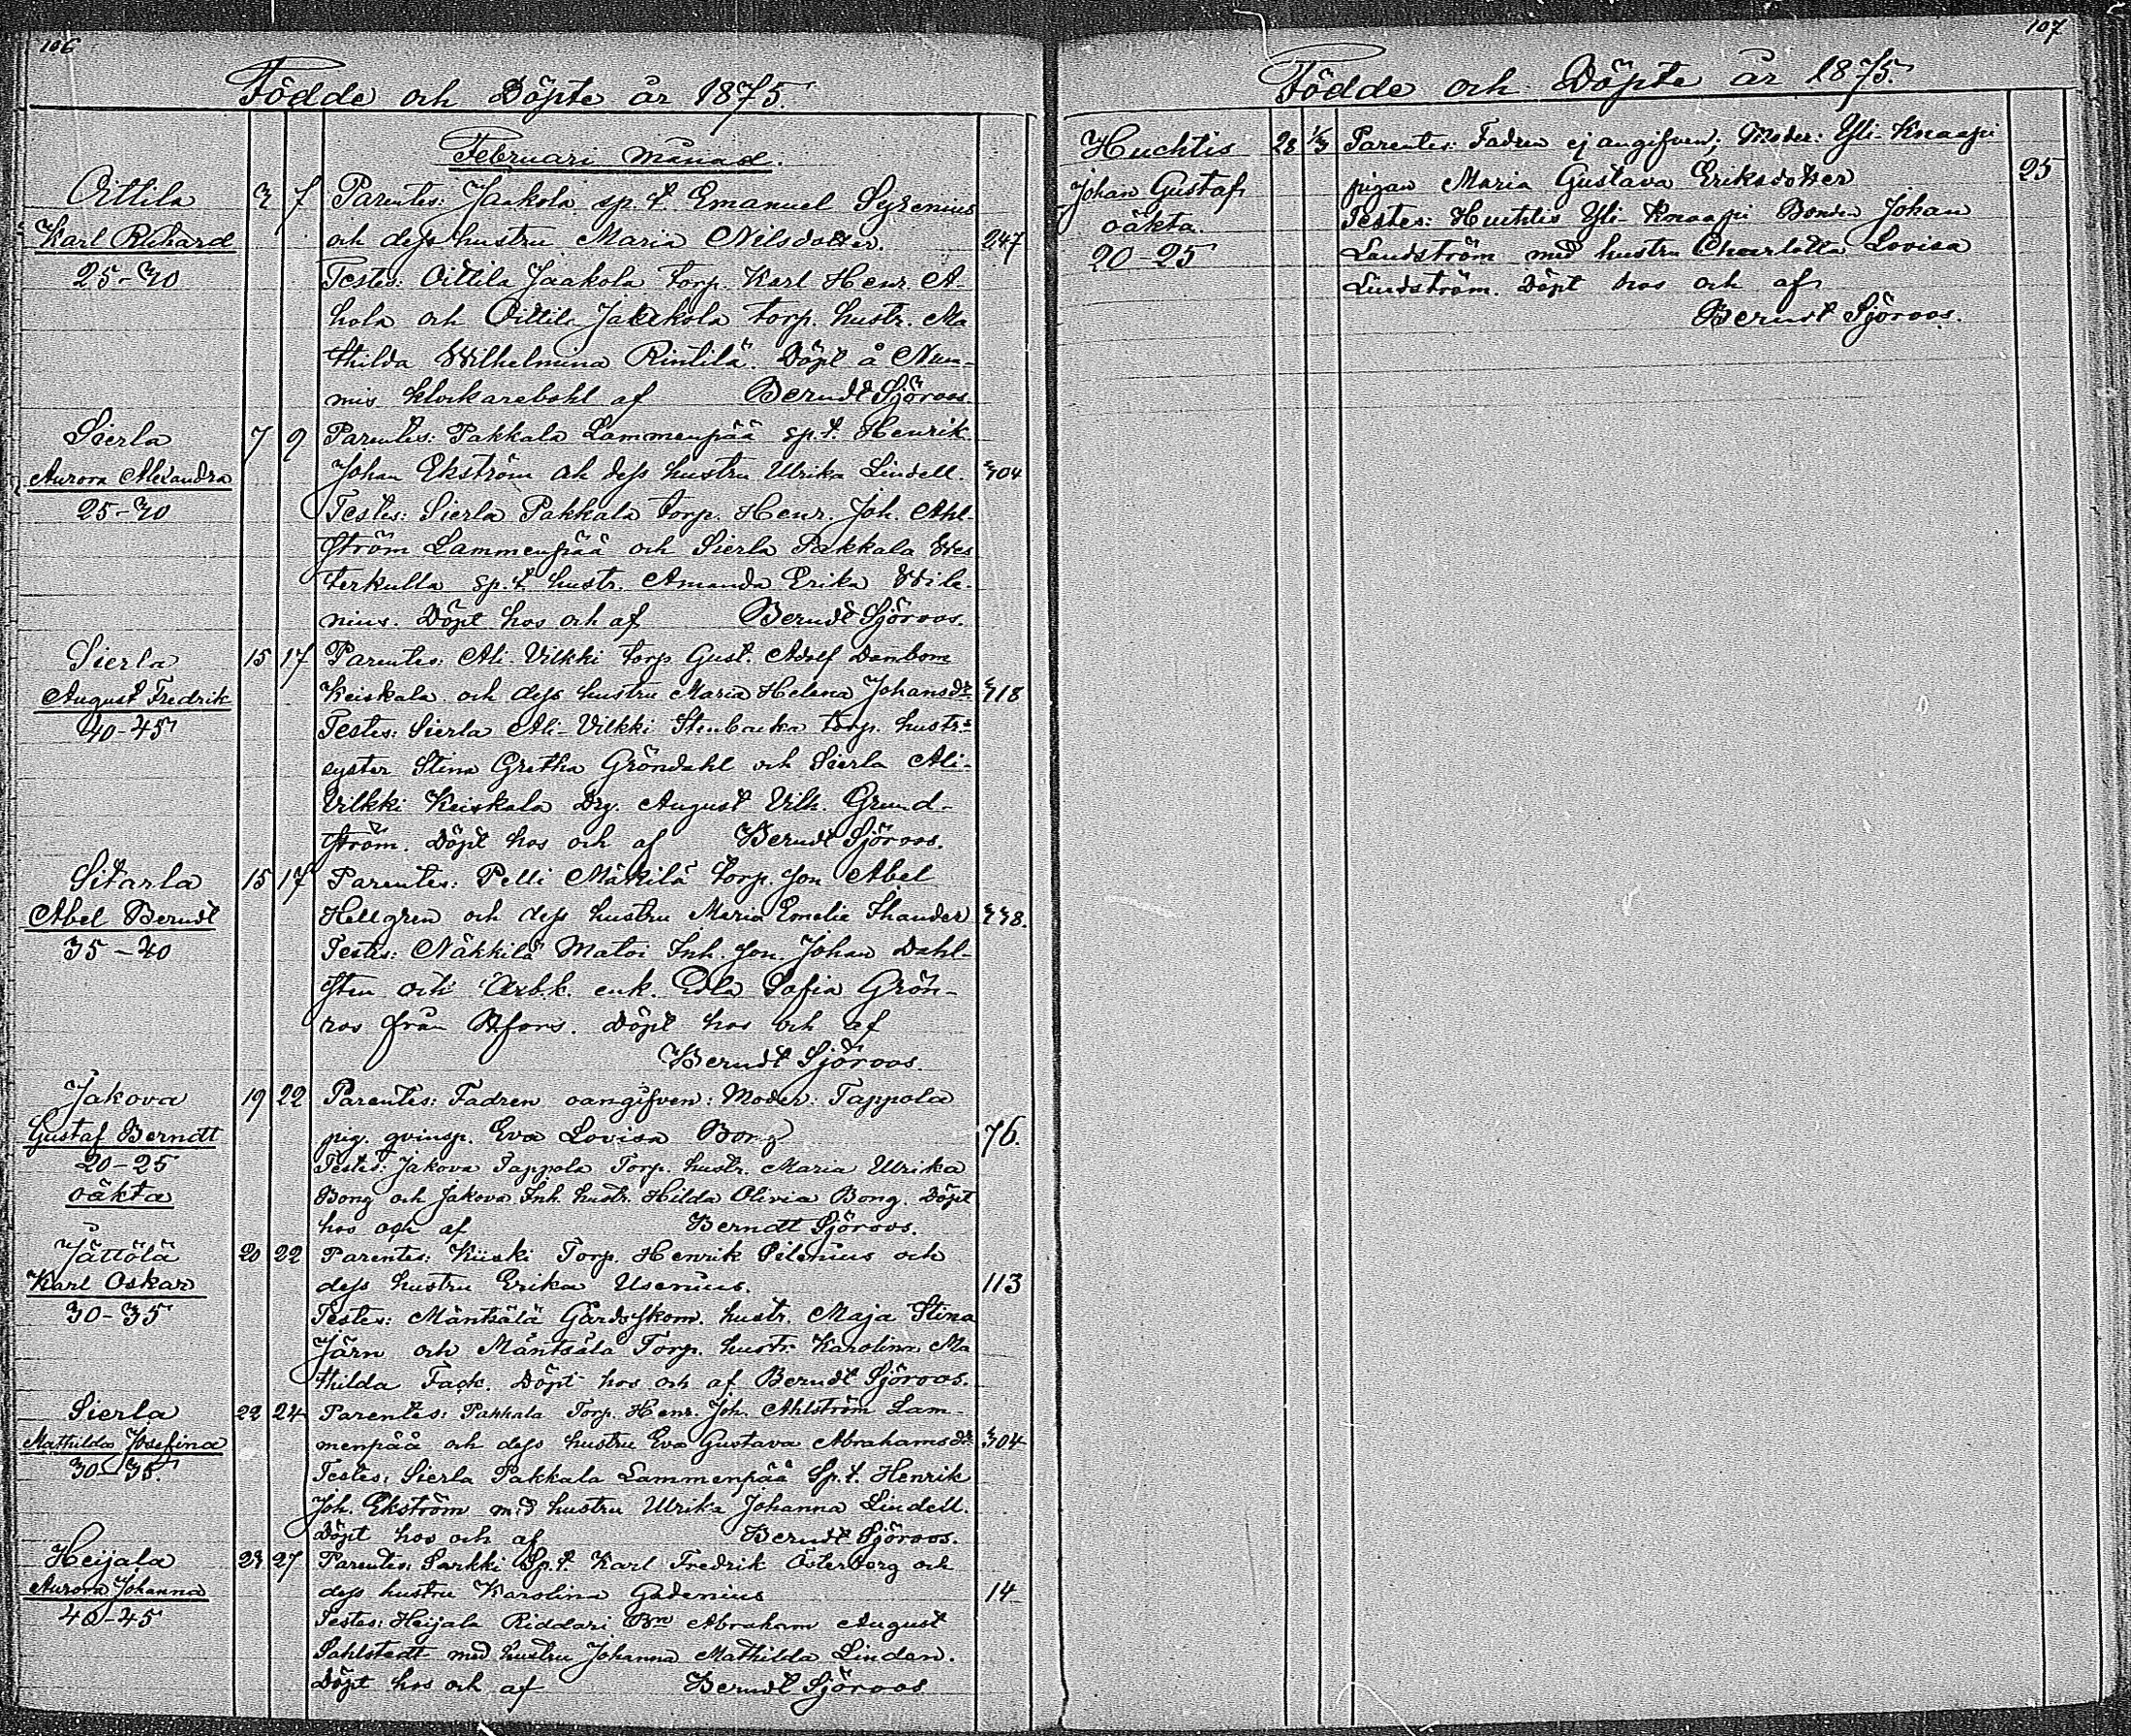 106
Födde och Döpte år 1875.
Februari månad.
Oittila 3 7 Parentes: Jaakola sp.t. Emanuel Syrenius
Karl Rikhard och dess hustru Maria Nilsdotter. 247
25-30 Testes: Oittila Jaakola torp. Karl Henr. A-
hola och Oittila Jaakola torp. hustr. Ma
thilda Wilhelmina Rintilä. Döpt å Num-
mis klockarebohl af Berndt Sjöroos.
Sierla 7 9 Parentes: Pakkala Lammenpää sp.t. Henrik
Aurora Alexandra Johan Ekström och dess hustru Ulrika Lindell. 304
25-30 Testes: Sierla Pakkala torp. Henr. Joh. Ahl-
ström Lammenpää och Sierla Pakkala Wes
terkulla sp.t. hustr. Amanda Erika Wile-
nius. Döpt hos och af Berndt Sjöroos.
Sierla 15 17 Parentes: Ali-Vilkki torp. Gust. Adolf Dambom
August Fredrik Keiskala och dess hustru Maria Helena Johansdr. 318
40-45 Testes: Sierla Ali-Vilkki Stenbacka torp. hustr:s
syster Stina Gretha Gröndahl och Sierla Ali-
Vilkki Keiskala Drg. August Vilh. Grund-
ström. Döpt hos och af Berndt Sjöroos.
Sitarla 15 17 Parentes: Pelli Mäkilä torp. son Abel
Abel Berndt Hellgren och dess hustru Maria Emelie Thander 338.
35-40 Testes: Näkkilä Matoi Inh. son. Johan Dahl-
sten och Arb.k. enk. Edla Sofia Grön-
ros från Hfors. Döpt hos och af
Berndt Sjöroos.
Jakova 19 22 Parentes: Fadren oangifven: Moder: Tappola
Gustaf Berndt pig. qvinsp. Eva Lovisa Bong 76.
20-25 Testes: Jakova Tappola Torp. hustr. Maria Ulrika
oäkta Bong och Jakova Inh. hustr. Hilda Olivia Bong. Döpt
hos och af Berndt Sjöroos.
Jättölä 20 22 Parentes: Kiiski Torp. Henrik Silenius och
Karl Oskar dess hustru Erika Usenius. 113
30-35 Testes: Mäntsälä Gårdsskom. hustr. Maja Stina
Järn och Mäntsälä Torp. hustr. Karolina Ma
thilda Fack. Döpt hos och af Berndt Sjöroos.
Sierla 22 24 Parentes: Pakkala Torp. Henr. Joh. Ahlström Lam-
Mathilda Josefina menpää och dess hustru Eva Gustava Abrahamsdr. 304
30-35. Testes: Sierla Pakkala Lammenpää Sp.t. Henrik
Joh. Ekström med hustru Ulrika Johanna Lindell.
Döpt hos och af Berndt Sjöroos.
Heijala 23 27 Parentes: Sarkki Sp.t. Karl Fredrik Österborg och
Aurora Johanna dess hustru Karolina Gadenius 14
40-45 Testes: Heijala Riddari Bn Abraham August
Sahlstedt med hustru Johanna Mathilda Linden.
Döpt hos och af Berndt Sjöroos
107
Födde och Döpte år 1875.
Huchtis 28 1/3 Parentes: Fadren ej angifven; Moder: Yli-Knaapi
Johan Gustaf pigan Maria Gustava Eriksdotter 25
oäkta. Testes: Huchtis Yli-Knaapi Bonden Johan
20-25 Landström med hustru Charlotta Lovisa
Lindström. Döpt hos och af
Berndt Sjöroos.